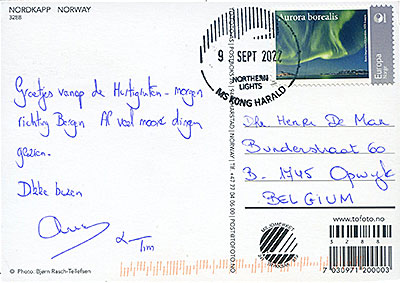 NORDKAPP NORWAY
3288
Groetjes vanop de Hurtigruten - morgen
richting Bergen Al veel mooie dingen
gezien.
Dikke buzen
& Tim
© Photo: Bjørn Rasch-Tellefsen
Aurora borealis
Europa
Norge
9 SEPT 2022
NORTHERN
LIGHTS
MS KONG HARALD
Dhr Henri De Man
Bunderstraat 60
B-1745 Opwijk
BELGIUM
www.tofoto.no
3288
7 030971 200003